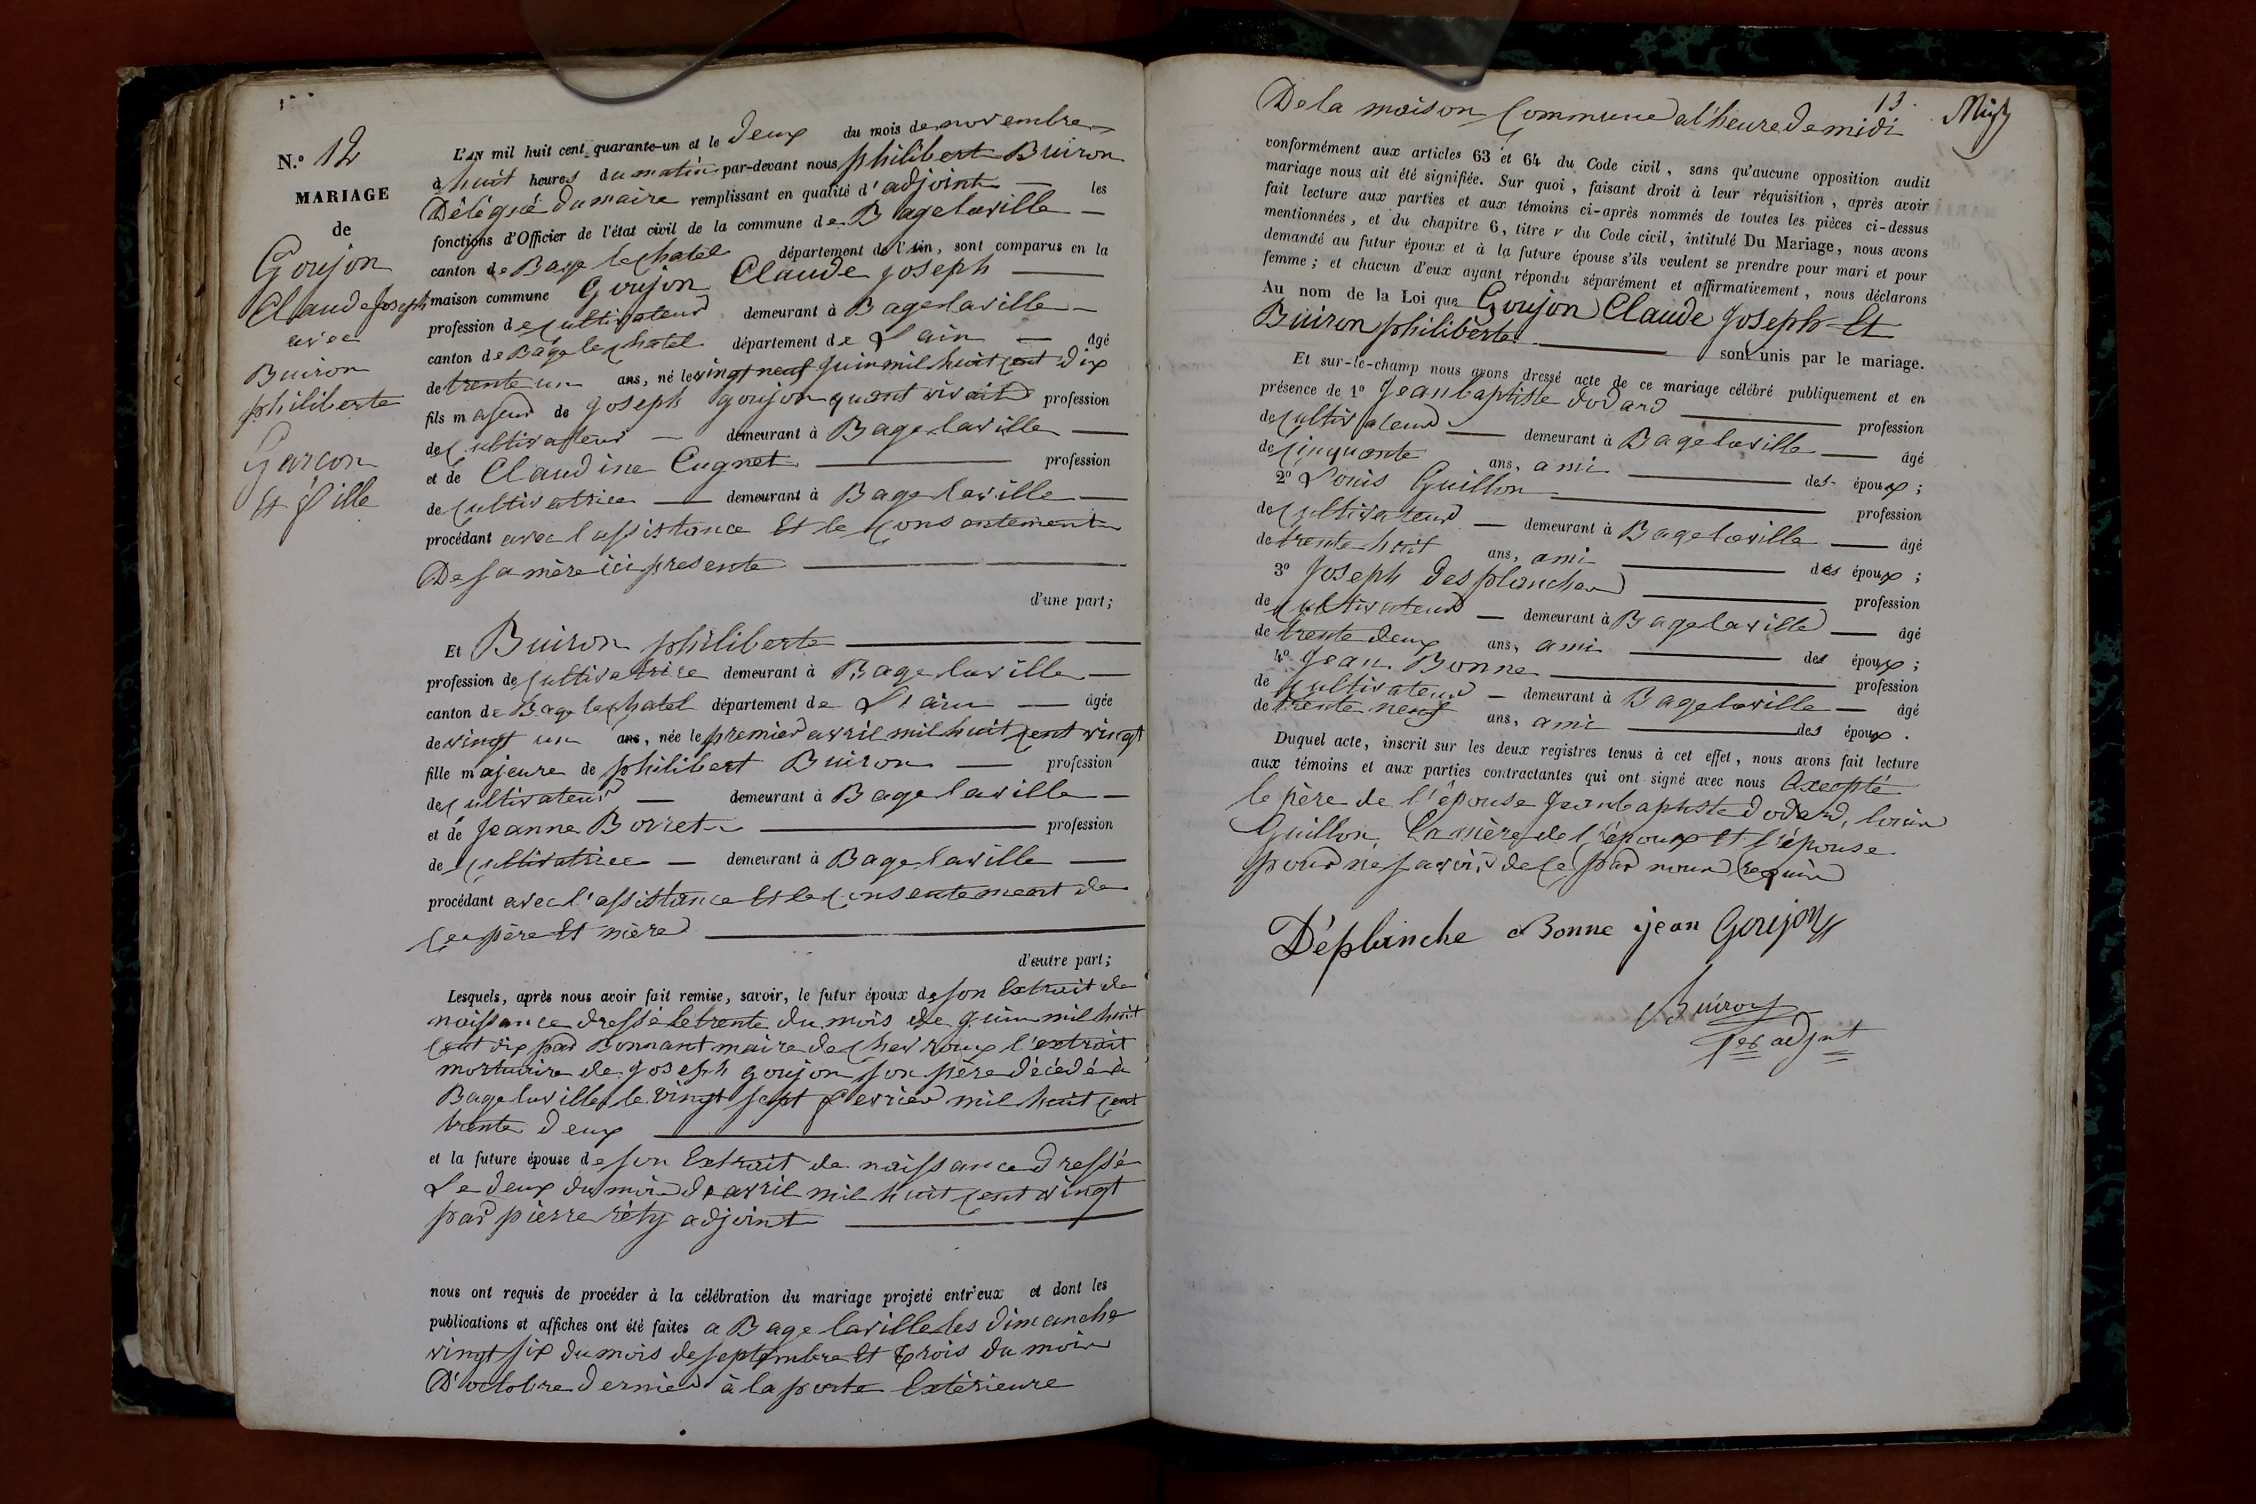 N.º 12
MARIAGE
de
Goujon
Claude Joseph
avec
Buiron
philiberte
Garcon
Et fille
L'AN mil huit cent quarante-un et le Deux du mois de novembre
à huit heures du matin par-devant nous philibert Buiron
Délégué du maire remplissant en qualité d'adjoint les
fonctions d'Officier de l'état civil de la commune de Bagelaville
canton de Bage le chatel département de l'Ain, sont comparus en la
maison commune Goujon Claude Joseph
profession de cultivateur demeurant à Bagelaville
canton de Bagé le chatel département de L'ain âgé
de trente un ans, né le vingt neuf Juin mil huit cent dix
fils majeur de Joseph goujon quant vivait profession
de cultivateur demeurant à Bagelaville
et de Claudine Cugnet profession
de cultivatrice demeurant à Bagelaville
procédant avec l'assistance Et le consentement
De sa mère ici presente
d'une part;
Et Buiron philiberte
profession de cultivatrice demeurant à Bagelaville
canton de Bage le chatel département de L'ain âgée
de vingt un ans, née le premier avril mil huit cent vingt
fille majeure de philibert Buiron profession
de cultivateur demeurant à Bagelaville
et de Jeanne Borret profession
de cultivatrice demeurant à Bagelaville
procédant avec l'assistance Et le consentement de
ses père Et mère
d'autre part;
Lesquels, après nous avoir fait remise, savoir, le futur époux de son Extrait de
naissance dressé le trente du mois de Juin mil huit
cent dix par Bonnant maire de chevroux l'extrait
mortuaire de Joseph goujon son père décédé à
Bagelaville le vingt sept fevrier mil huit cent
trente deux
et la future épouse de son Extrait de naissance dressé
Le deux du mois d'avril mil huit cent vingt
par pierre réty adjoint
nous ont requis de procéder à la célébration du mariage projeté entr'eux et dont les
publications et affiches ont été faites a Bage laville les dimanche
vingt six du mois de septembre Et trois du mois
D'octobre dernier à la porte Extérieure
13.
De la maison Commune a l'heure de midi
conformément aux articles 63 et 64 du Code civil, sans qu'aucune opposition audit
mariage nous ait été signifiée. Sur quoi, faisant droit à leur réquisition, après avoir
fait lecture aux parties et aux témoins ci-après nommés de toutes les pièces ci-dessus
mentionnées, et du chapitre 6, titre v du Code civil, intitulé Du Mariage, nous avons
demandé au futur époux et à la future épouse s'ils veulent se prendre pour mari et pour
femme; et chacun d'eux ayant répondu séparément et affirmativement, nous déclarons
Au nom de la Loi que Goujon Claude Joseph Et
Buiron philiberte sont unis par le mariage.
Et sur-le-champ nous avons dressé acte de ce mariage célébré publiquement et en
présence de 1º Jean baptiste dodard profession
de cultivateur demeurant à Bagelaville âgé
de cinquante ans, ami des époux;
2º Louis Guillon profession
de cultivateur demeurant à Bagelaville âgé
de trente huit ans, ami des époux;
3º Joseph Desplanches profession
de cultivateur demeurant à Bagelaville âgé
de trente deux ans, ami des époux;
4º Jean Bonne profession
de cultivateur demeurant à Bagelaville âgé
de trente neuf ans, ami des époux.
Duquel acte, inscrit sur les deux registres tenus à cet effet, nous avons fait lecture
aux témoins et aux parties contractantes qui ont signé avec nous Excepté
le père de l'épouse Jean baptiste dodard, louis
Guillon, la mère de l'époux Et l'épouse
pour ne savoir de ce par nous requis
Déplanche Bonne jean Goujon
Buiron
1er adjnt